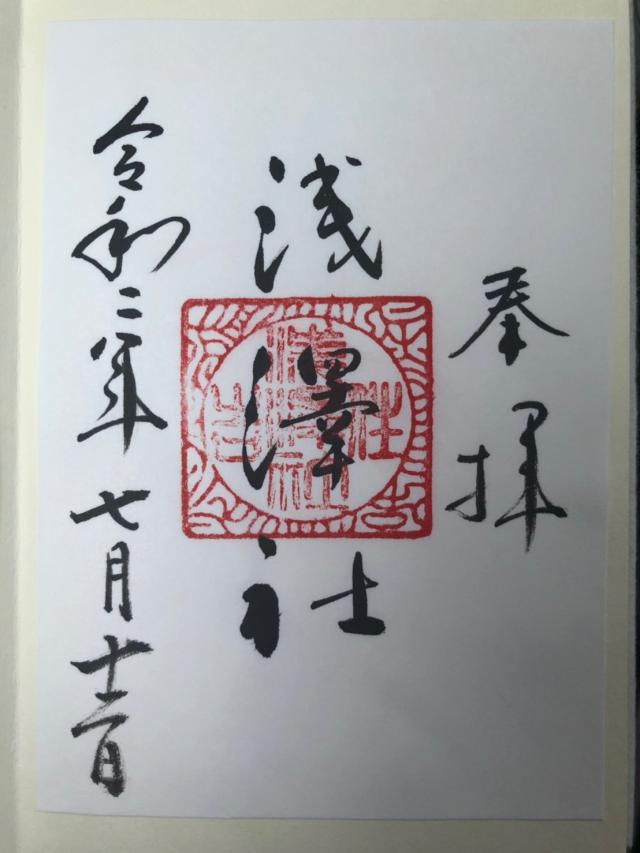 奉拝
浅澤社
令和二年七月十二日